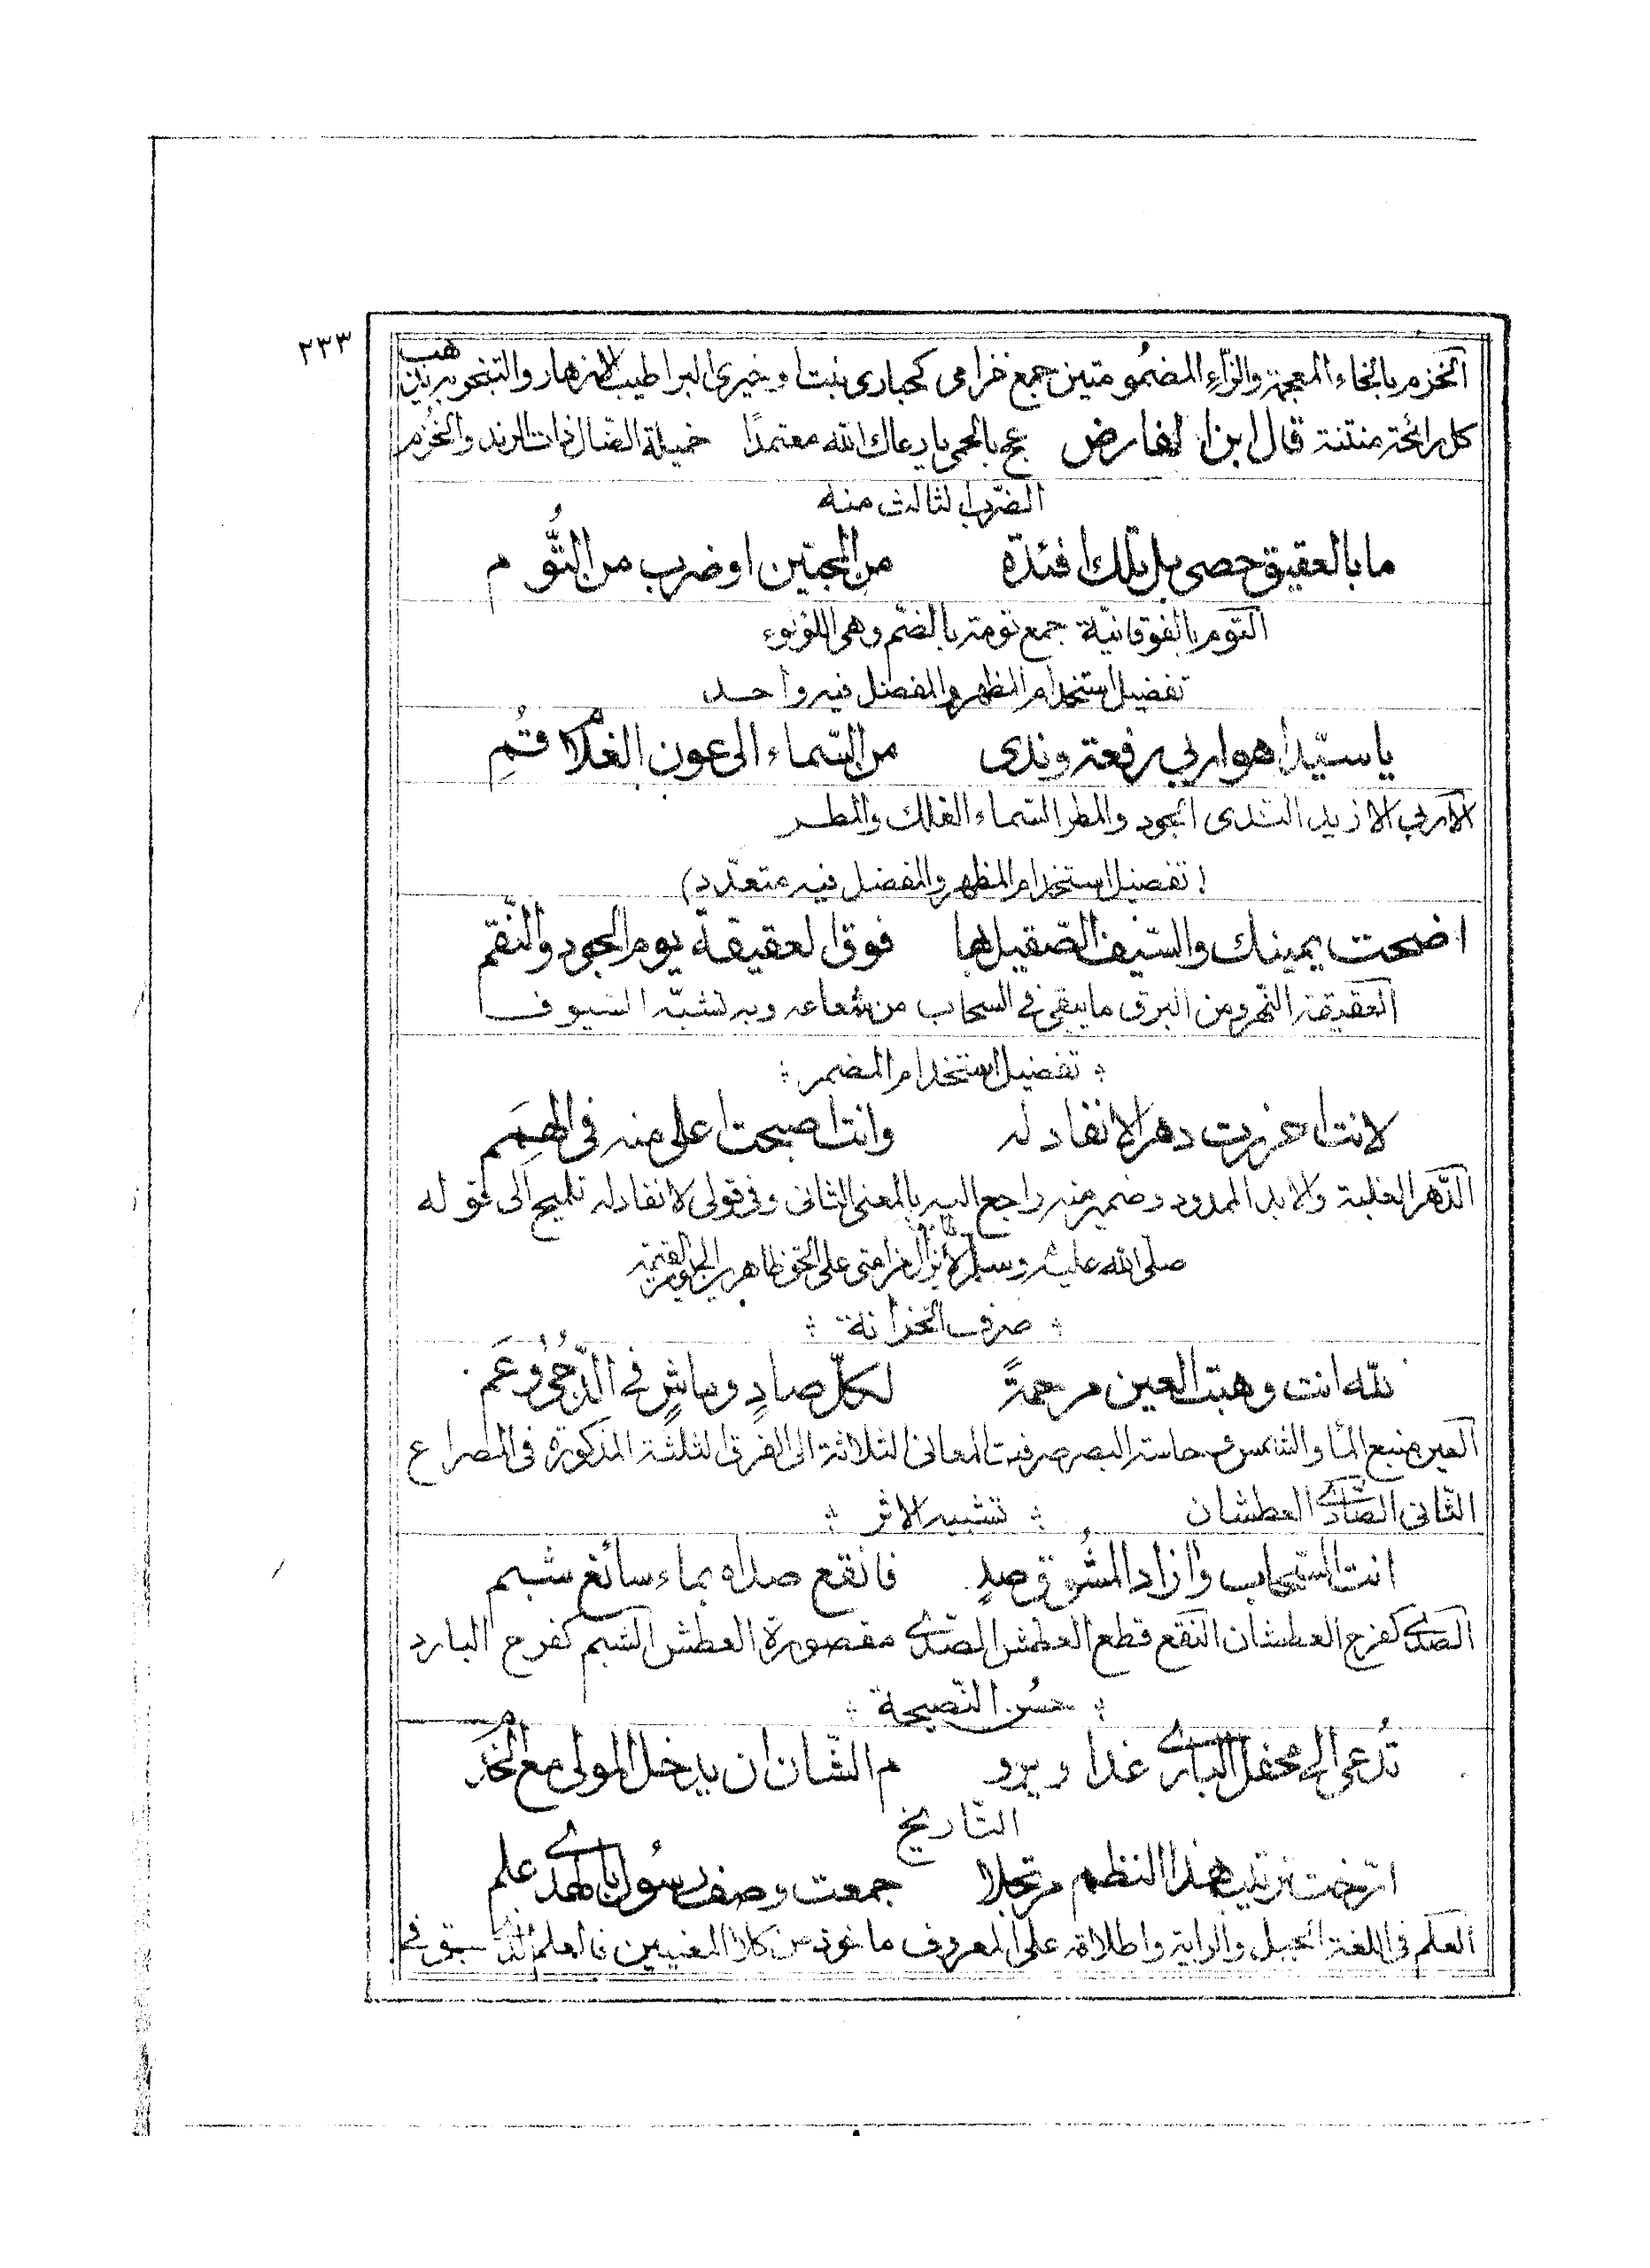 ٢٣٣
الخزم بالخاء المعجمة والزاء المضمومتين جمع خزامى كحبارى نبت او خيرى البر اطيب الازهار والتبخر به يذهب
كل رائحة منتنة قال ابن الفارض عج بالحمى يا رعاك الله معتمدًا خميلة الضال ذات الرند والخزم
الضرب الثالث منه
ما بالعقيق حصى بل تلك افئدة من المحبّين او ضرب من التُّوم
التوم بالفوقانيّة جمع تومة بالضمّ وهى اللؤلوء
تفضيل استخدام المظهر والمفضل فيه واحد
يا سيّدا هو اربى رفعة وندى من السّماء الى عون الغلام قُمِ
الاربى الازيد الندى الجود والمطر السماء الفلك والمطر
(تفضيل استخدام المظهر والمفضل فيه متعدّد)
اضحت يمينك والسّيف الصّقيل بها فوق العقيقة يوم الجود والنّقم
العقيقة النهر ومن البرق ما يبقى فى السحاب من شعاعه وبه تشبّه السيوف
تفضيل استخدام المضمر
لانت احرزت دهرا لا نفاد له وانت اصبحت اعلى منه فى الهِمَم
الدّهر الغلبة والابد الممدود وضمير منه راجع اليه بالمعنى الثانى وفى قولى لا نفاد له تلميح الى قوله
صلى الله عليه وسلم لا يزال من امتى على الحق ظاهرين الى يوم القيمة
صرف الخزانة
لله انت وهبت العين مرحمةً لكلّ صادٍ وماشٍ فى الدّجى وعَم
العين منبع الماء والشمس و حاسة البصر صرفت المعانى الثلاثة الى الفرق الثلثة المذكورة فى المصراع
الثانى الصّادى العطشان تشبيه الاثر
انت السّحاب وازاد المشوق صدٍ فانقع صداه بماء سائغ شبم
الصدى كفرح العطشان النقع قطع العطش الصّدى مقصورة العطش الشبم كفرح البارد
حسُن النّصيحة
تُدعى الى محفل البارى غدا ويرو م الشّان ان يدخل المولى مع الخَدَم
التاريخ
ارّخت ترتيب هذا النظم مرتجلا جمعت وصف رسُول بالهدى علم
العلم فى اللغة الجبل والراية واطلاقه على المعروف ماخوذ من كلا المعنيين فالعلم الذى سبق فى